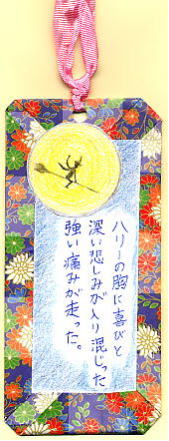 ハリーの胸に喜びと
深い悲しみが入り混じった
強い痛みが走った。